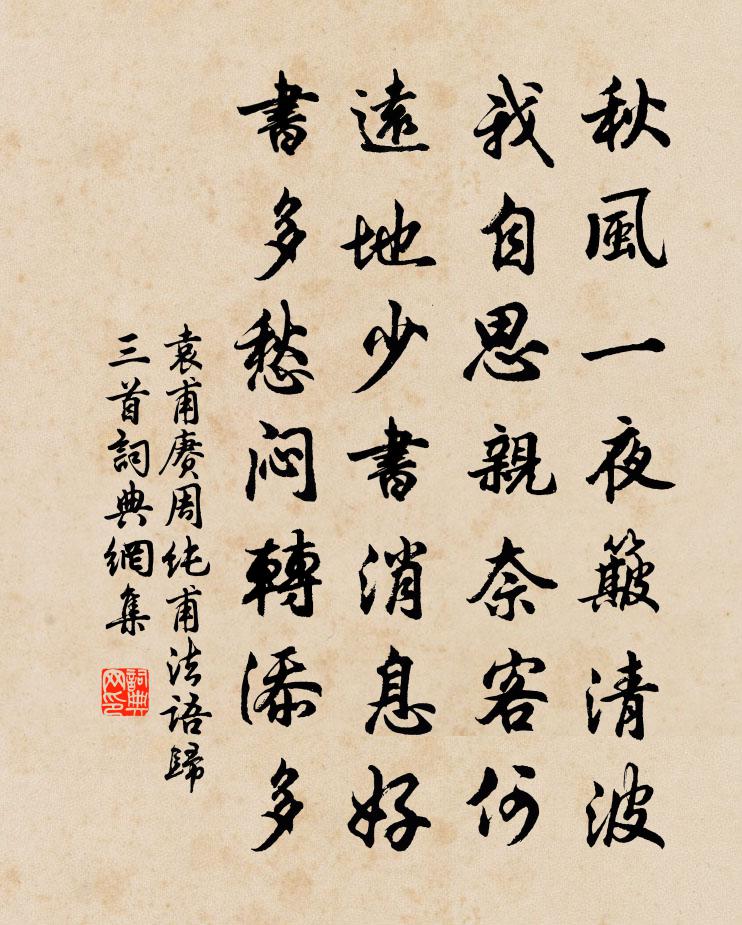 秋風一夜簸清波
我自思親奈客何
遠地少書消息好
書多愁悶轉添多
袁甫賡周純甫法語歸
三首詞典網集
詞典網印